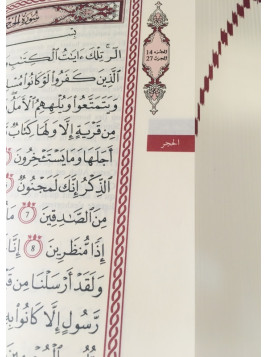 سُورَةُ الحِجْرِ
الٓر ۚ تِلْكَ ءَايَٰتُ ٱلْكِتَٰبِ
ٱلَّذِينَ كَفَرُوا۟ لَوْ كَانُوا۟ مُسْ
وَيَتَمَتَّعُوا۟ وَيُلْهِهِمُ ٱلْأَمَلُ
مِن قَرْيَةٍ إِلَّا وَلَهَا كِتَابٌ
أَجَلَهَا وَمَا يَسْتَـْٔخِرُونَ
ٱلذِّكْرُ إِنَّكَ لَمَجْنُونٌ
مِنَ ٱلصَّٰدِقِينَ 7 مَا
إِذًا مُّنظَرِينَ 8 إِنَّا
وَلَقَدْ أَرْسَلْنَا مِن
رَّسُولٍ إِلَّا كَانُوا۟ بِهِ
الجزء 14
الحزب 27
الحجر